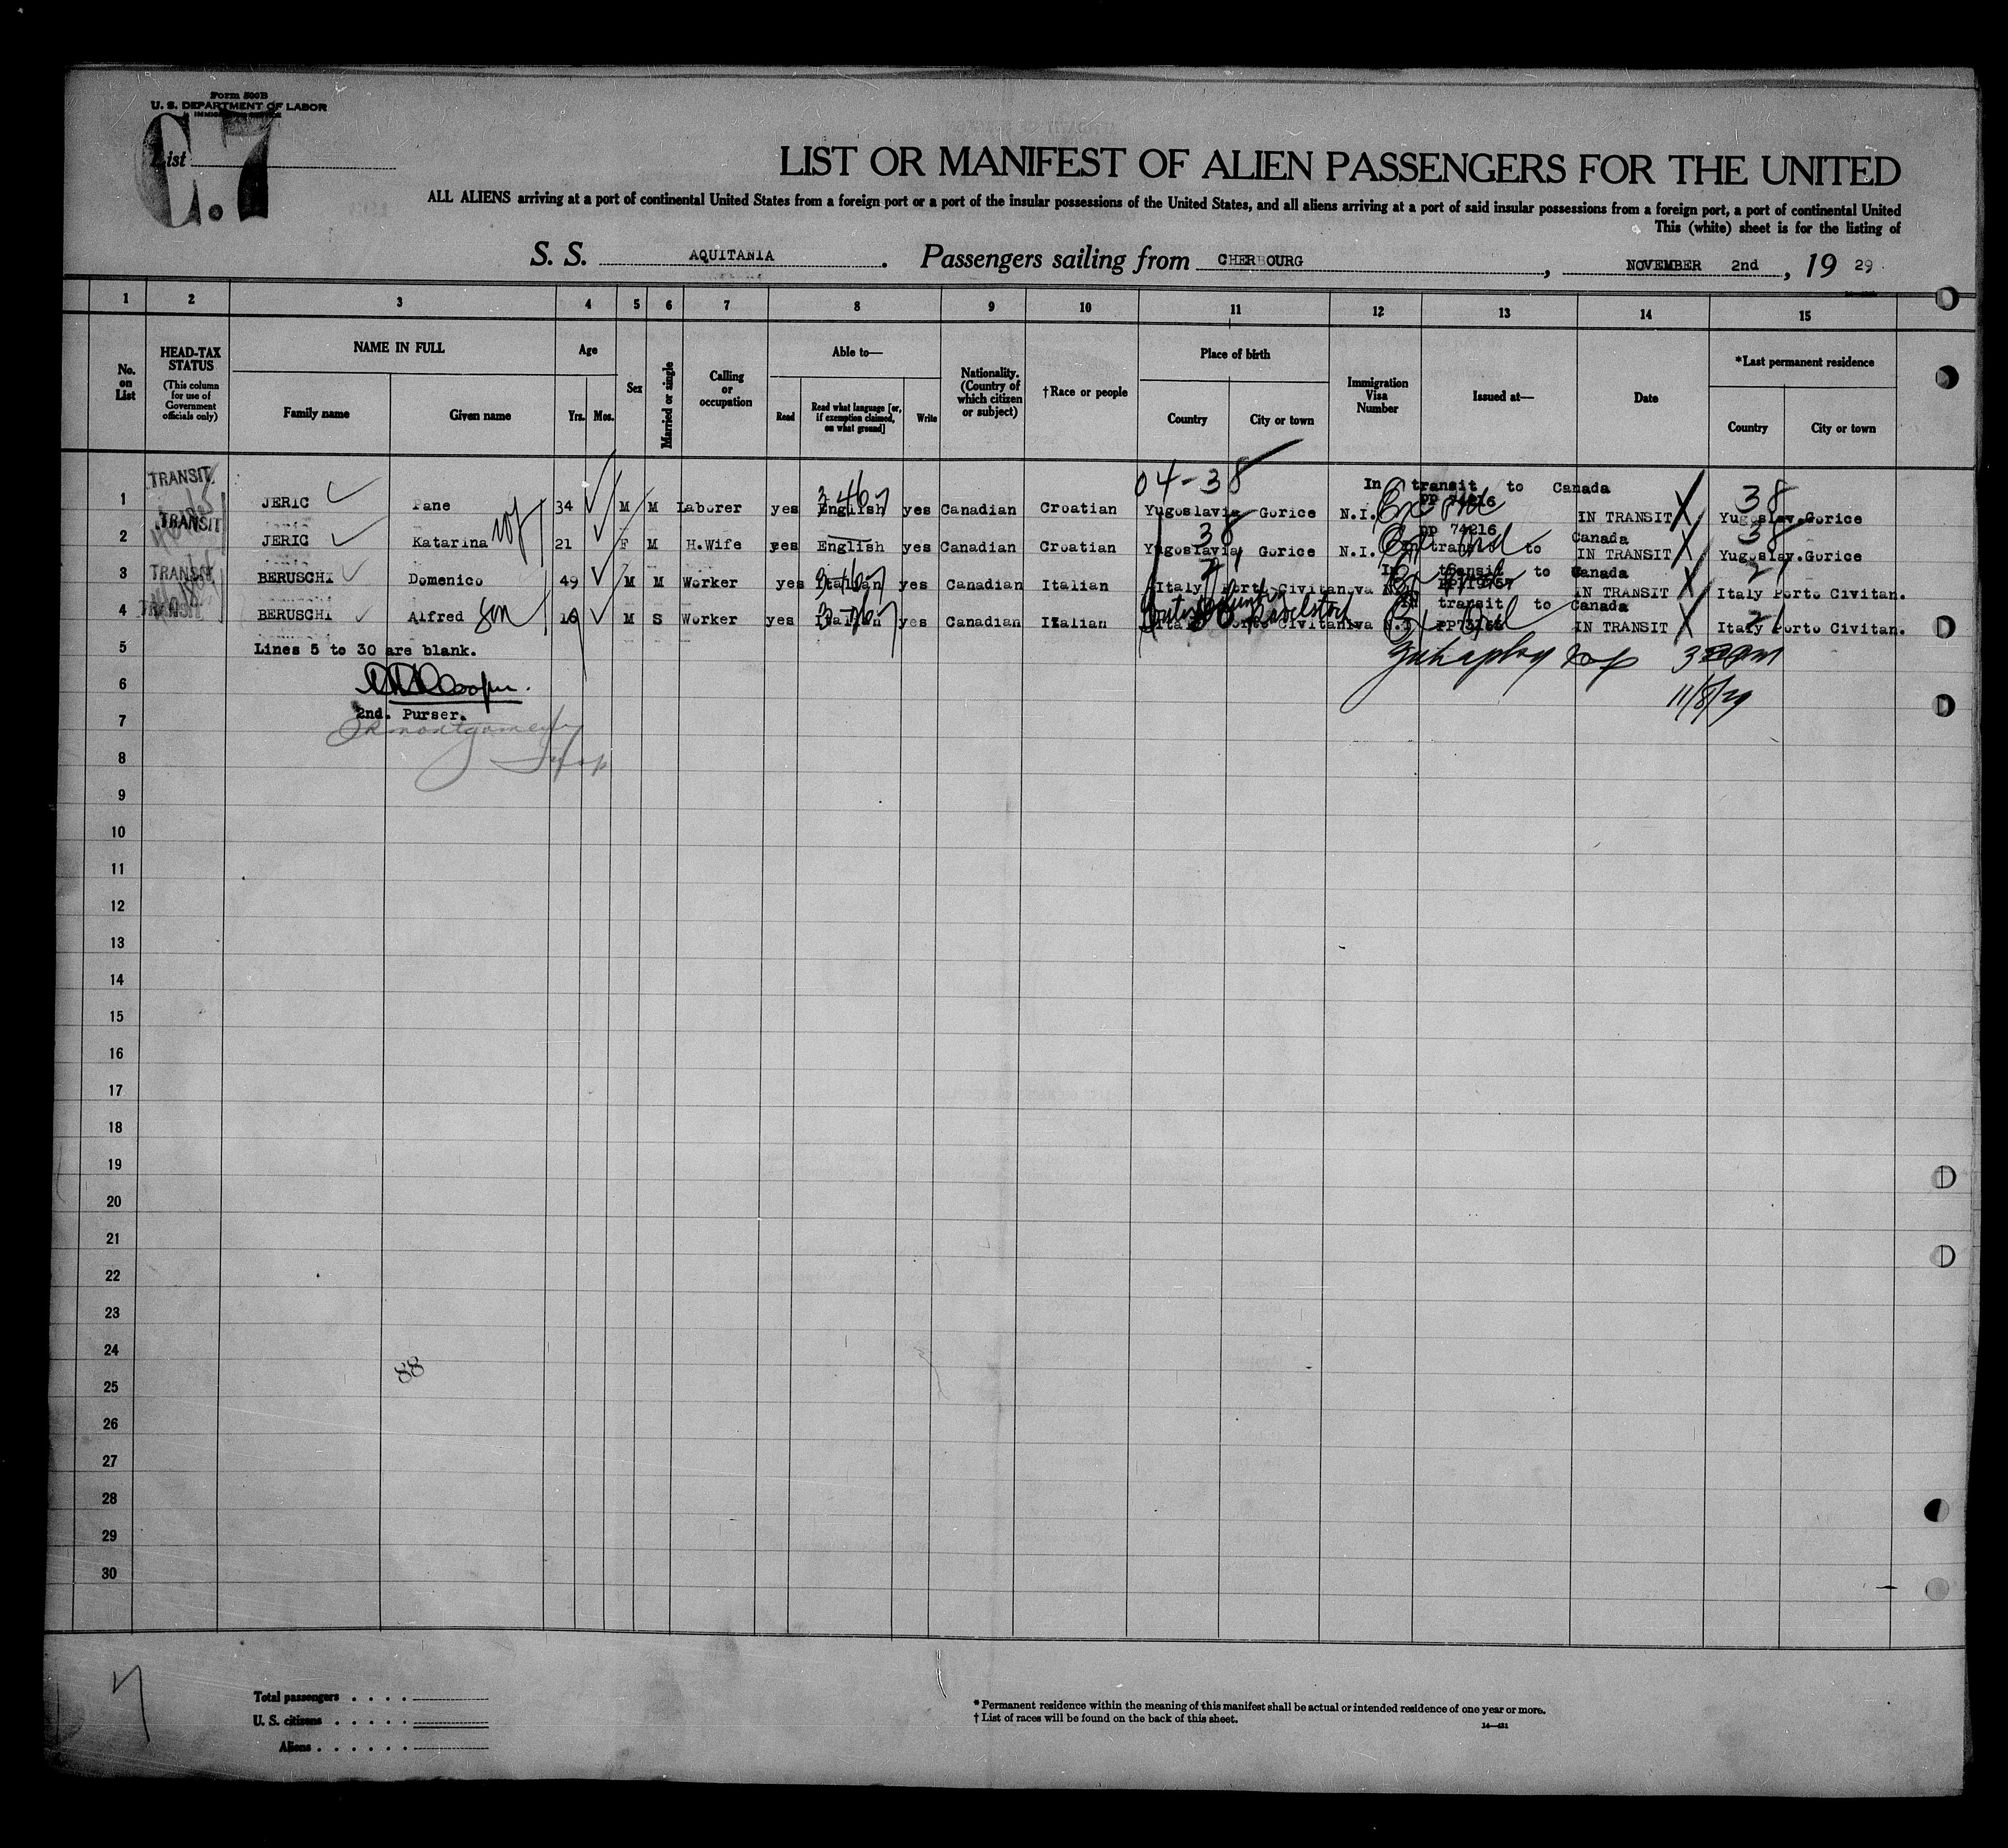 Form 500B
U. S. DEPARTMENT OF LABOR
IMMIGRATION SERVICE
List
C.7
LIST OR MANIFEST OF ALIEN PASSENGERS FOR THE UNITED
ALL ALIENS arriving at a port of continental United States from a foreign port or a port of the insular possessions of the United States, and all aliens arriving at a port of said insular possessions from a foreign port, a port of continental United
This (white) sheet is for the listing of
S. S. AQUITANIA. Passengers sailing from CHERBOURG, NOVEMBER 2nd, 19 29
1 2 3 4 5 6 7 8 9 10 11 12 13 14 15
No. on List
HEAD-TAX STATUS
(This column for use of Government officials only)
NAME IN FULL
Family name
Given name
Age
Yrs.
Mos.
Sex
Married or single
Calling or occupation
Able to—
Read
Read what language [or, if exemption claimed, on what ground]
Write
Nationality. (Country of which citizen or subject)
†Race or people
Place of birth
Country
City or town
Immigration Visa Number
Issued at—
Date
*Last permanent residence
Country
City or town
04-38
In transit to Canada
PP 74216
1 TRANSIT JERIC Pane 34 M M Laborer yes English yes Canadian Croatian Yugoslavia Gorice N.I. IN TRANSIT X 38 Yugoslav.Gorice
PP 74216
In transit to Canada
2 TRANSIT JERIC Katarina wf 21 F M H.Wife yes English yes Canadian Croatian 38 Yugoslavia Gorice N.I. IN TRANSIT X 38 Yugoslav.Gorice
In transit to Canada
3 TRANSIT BERUSCHI Domenico 49 M M Worker yes Italian yes Canadian Italian Italy Porto Civitanova IN TRANSIT X 21 Italy Porto Civitan.
In transit to Canada
4 TRANSIT BERUSCHI Alfred son 16 M S Worker yes Italian yes Canadian Italian Italy Porto Civitanova N.I. IN TRANSIT X 21 Italy Porto Civitan.
5 Lines 5 to 30 are blank.
6
2nd. Purser.
11/8/29
7
8
9
10
11
12
13
14
15
16
17
18
19
20
21
22
23
24
88
25
26
27
28
29
30
Total passengers
U. S. citizens
Aliens
* Permanent residence within the meaning of this manifest shall be actual or intended residence of one year or more.
† List of races will be found on the back of this sheet.